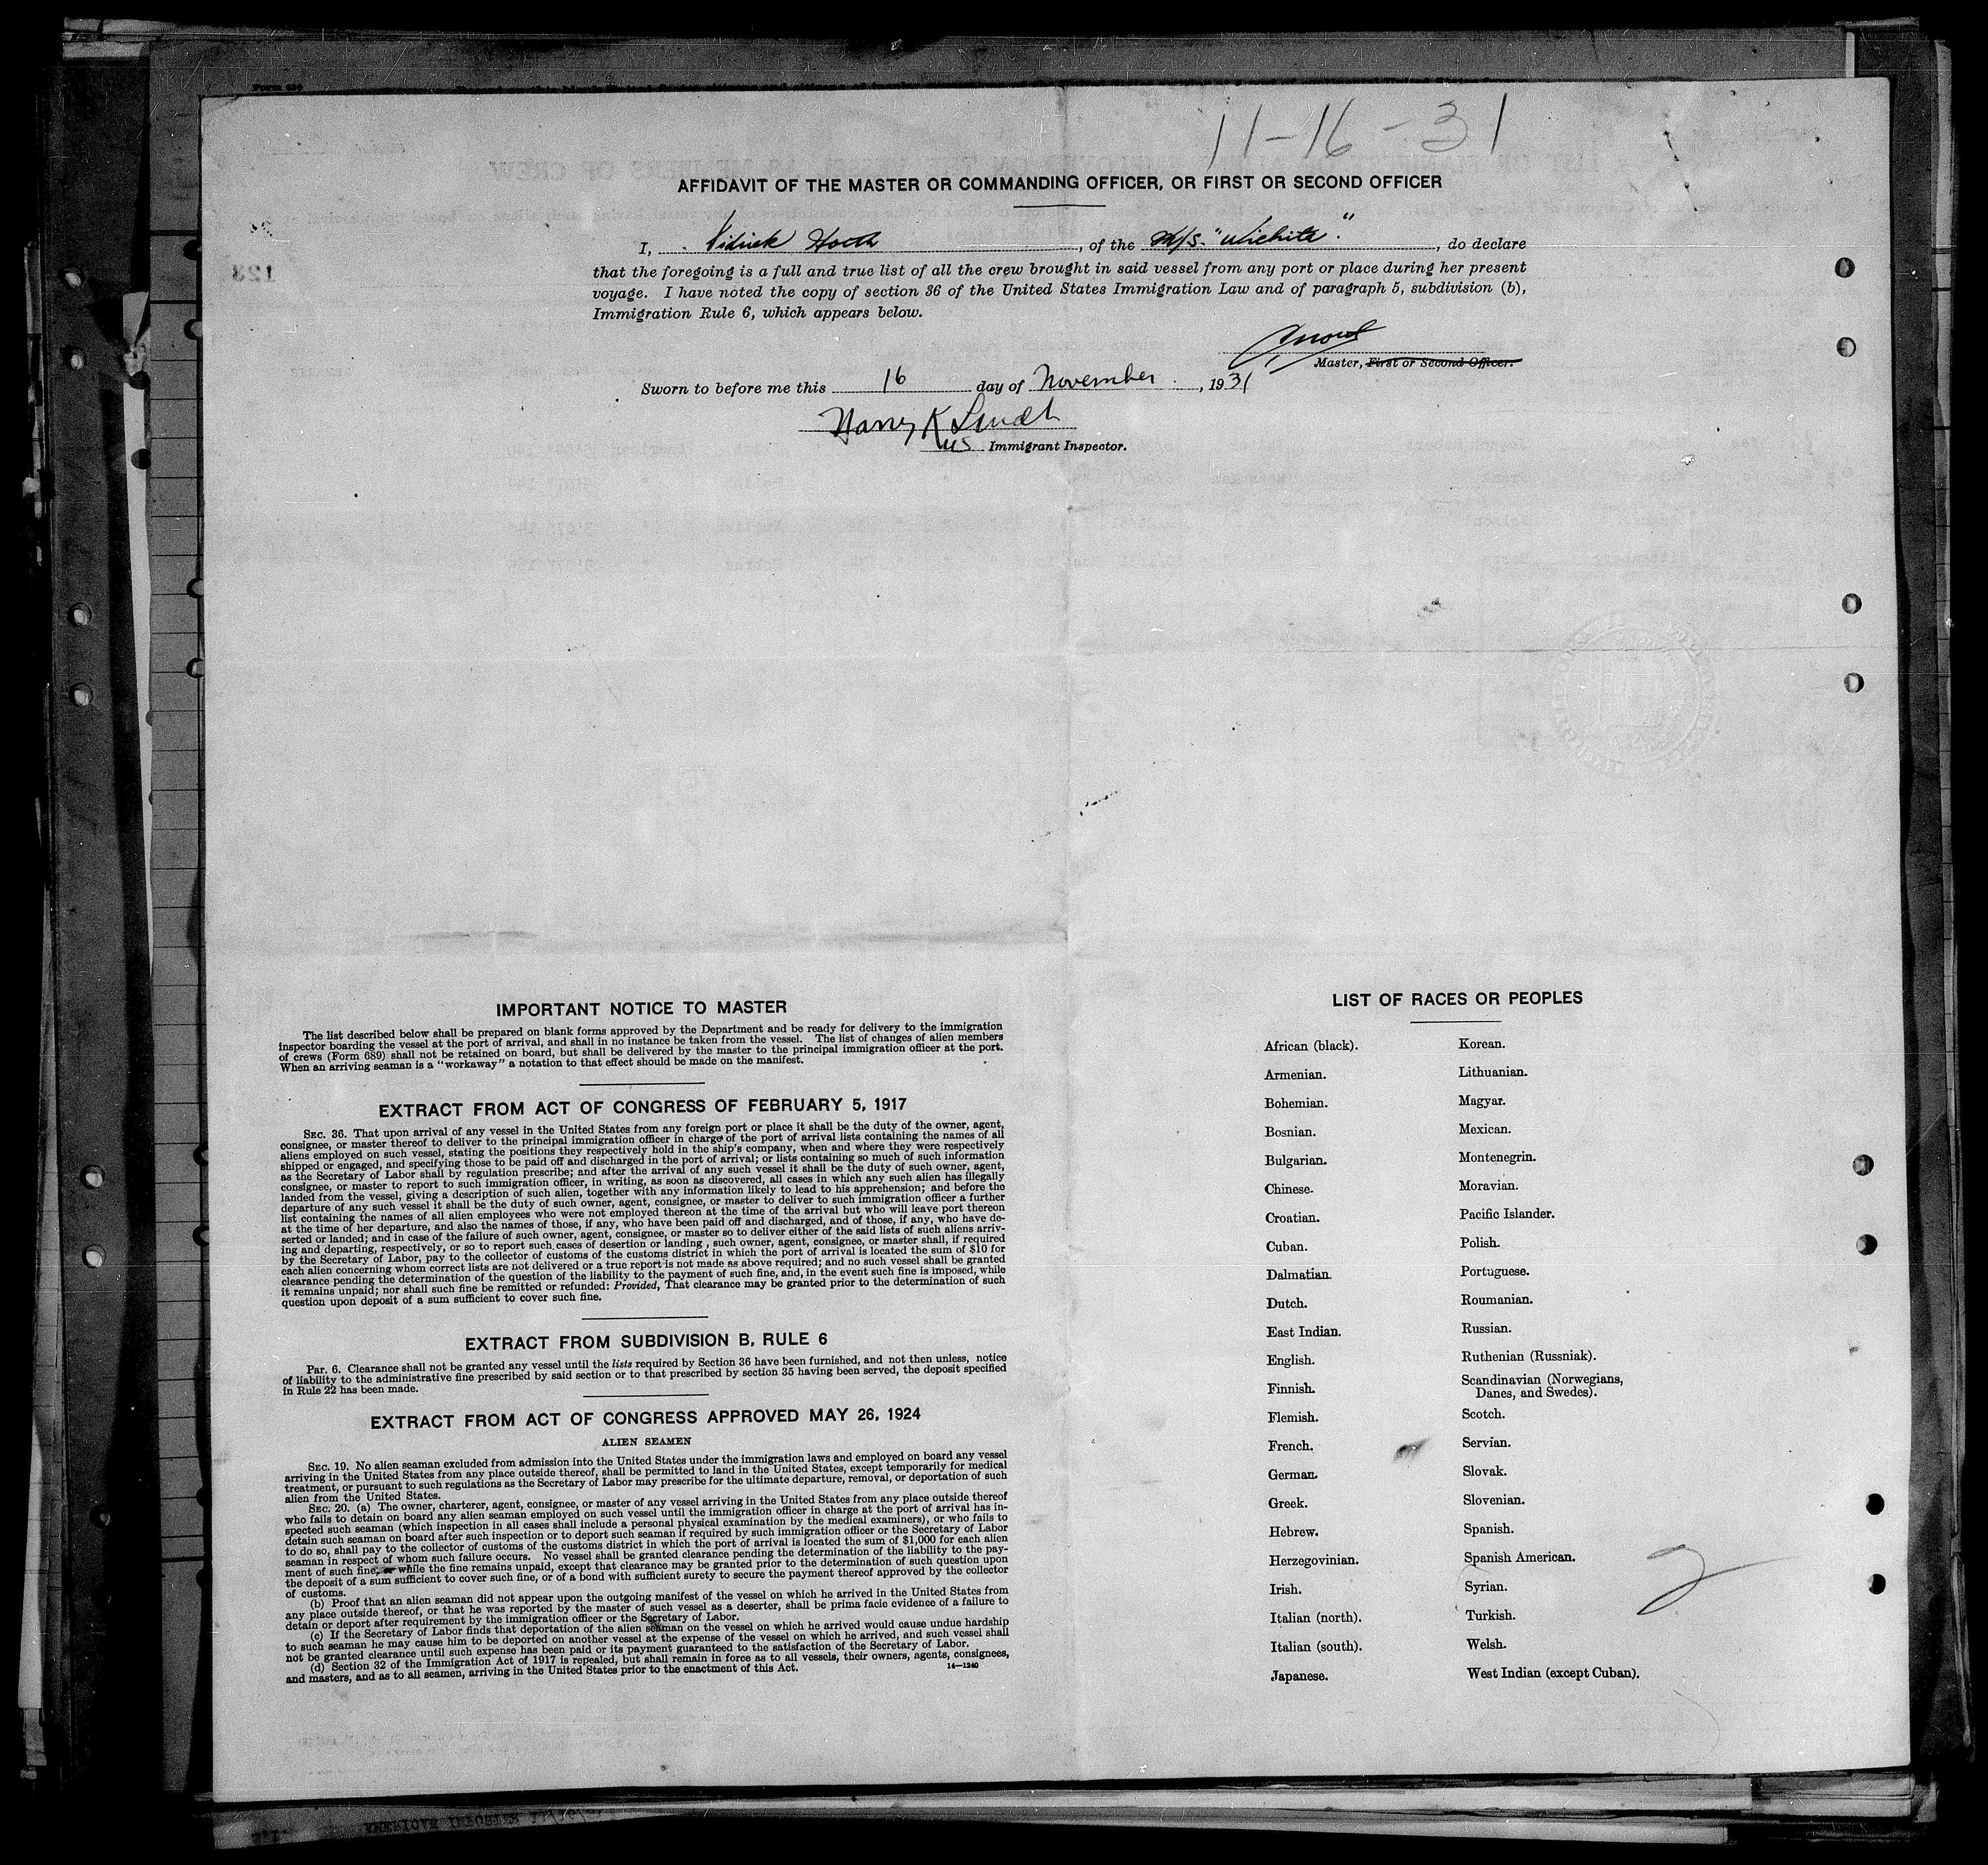 11-16-31
AFFIDAVIT OF THE MASTER OR COMMANDING OFFICER, OR FIRST OR SECOND OFFICER
I, , of the M/S. "Wichita". , do declare
that the foregoing is a full and true list of all the crew brought in said vessel from any port or place during her present
voyage. I have noted the copy of section 36 of the United States Immigration Law and of paragraph 5, subdivision (b),
Immigration Rule 6, which appears below.
Master, First or Second Officer.
Sworn to before me this 16 day of November , 1931
Harry K
US Immigrant Inspector.
IMPORTANT NOTICE TO MASTER
The list described below shall be prepared on blank forms approved by the Department and be ready for delivery to the immigration
inspector boarding the vessel at the port of arrival, and shall in no instance be taken from the vessel. The list of changes of alien members
of crews (Form 689) shall not be retained on board, but shall be delivered by the master to the principal immigration officer at the port.
When an arriving seaman is a "workaway" a notation to that effect should be made on the manifest.
EXTRACT FROM ACT OF CONGRESS OF FEBRUARY 5, 1917
SEC. 36. That upon arrival of any vessel in the United States from any foreign port or place it shall be the duty of the owner, agent,
consignee, or master thereof to deliver to the principal immigration officer in charge of the port of arrival lists containing the names of all
aliens employed on such vessel, stating the positions they respectively hold in the ship's company, when and where they were respectively
shipped or engaged, and specifying those to be paid off and discharged in the port of arrival; or lists containing so much of such information
as the Secretary of Labor shall by regulation prescribe; and after the arrival of any such vessel it shall be the duty of such owner, agent,
consignee, or master to report to such immigration officer, in writing, as soon as discovered, all cases in which any such alien has illegally
landed from the vessel, giving a description of such alien, together with any information likely to lead to his apprehension; and before the
departure of any such vessel it shall be the duty of such owner, agent, consignee, or master to deliver to such immigration officer a further
list containing the names of all alien employees who were not employed thereon at the time of the arrival but who will leave port thereon
at the time of her departure, and also the names of those, if any, who have been paid off and discharged, and of those, if any, who have de-
serted or landed; and in case of the failure of such owner, agent, consignee, or master so to deliver either of the said lists of such aliens arriv-
ing and departing, respectively, or so to report such cases of desertion or landing , such owner, agent, consignee, or master shall, if required
by the Secretary of Labor, pay to the collector of customs of the customs district in which the port of arrival is located the sum of $10 for
each alien concerning whom correct lists are not delivered or a true report is not made as above required; and no such vessel shall be granted
clearance pending the determination of the question of the liability to the payment of such fine, and, in the event such fine is imposed, while
it remains unpaid; nor shall such fine be remitted or refunded: Provided, That clearance may be granted prior to the determination of such
question upon deposit of a sum sufficient to cover such fine.
EXTRACT FROM SUBDIVISION B, RULE 6
Par. 6. Clearance shall not be granted any vessel until the lists required by Section 36 have been furnished, and not then unless, notice
of liability to the administrative fine prescribed by said section or to that prescribed by section 35 having been served, the deposit specified
in Rule 22 has been made.
EXTRACT FROM ACT OF CONGRESS APPROVED MAY 26, 1924
ALIEN SEAMEN
SEC. 19. No alien seaman excluded from admission into the United States under the immigration laws and employed on board any vessel
arriving in the United States from any place outside thereof, shall be permitted to land in the United States, except temporarily for medical
treatment, or pursuant to such regulations as the Secretary of Labor may prescribe for the ultimate departure, removal, or deportation of such
alien from the United States.
SEC. 20. (a) The owner, charterer, agent, consignee, or master of any vessel arriving in the United States from any place outside thereof
who fails to detain on board any alien seaman employed on such vessel until the immigration officer in charge at the port of arrival has in-
spected such seaman (which inspection in all cases shall include a personal physical examination by the medical examiners), or who fails to
detain such seaman on board after such inspection or to deport such seaman if required by such immigration officer or the Secretary of Labor
to do so, shall pay to the collector of customs of the customs district in which the port of arrival is located the sum of $1,000 for each alien
seaman in respect of whom such failure occurs. No vessel shall be granted clearance pending the determination of the liability to the pay-
ment of such fine, or while the fine remains unpaid, except that clearance may be granted prior to the determination of such question upon
the deposit of a sum sufficient to cover such fine, or of a bond with sufficient surety to secure the payment thereof approved by the collector
of customs.
(b) Proof that an alien seaman did not appear upon the outgoing manifest of the vessel on which he arrived in the United States from
any place outside thereof, or that he was reported by the master of such vessel as a deserter, shall be prima facie evidence of a failure to
detain or deport after requirement by the immigration officer or the Secretary of Labor.
(c) If the Secretary of Labor finds that deportation of the alien seaman on the vessel on which he arrived would cause undue hardship
to such seaman he may cause him to be deported on another vessel at the expense of the vessel on which he arrived, and such vessel shall
not be granted clearance until such expense has been paid or its payment guaranteed to the satisfaction of the Secretary of Labor.
(d) Section 32 of the Immigration Act of 1917 is repealed, but shall remain in force as to all vessels, their owners, agents, consignees,
and masters, and as to all seamen, arriving in the United States prior to the enactment of this Act.
14—1240
LIST OF RACES OR PEOPLES
African (black).
Armenian.
Bohemian.
Bosnian.
Bulgarian.
Chinese.
Croatian.
Cuban.
Dalmatian.
Dutch.
East Indian.
English.
Finnish.
Flemish.
French.
German.
Greek.
Hebrew.
Herzegovinian.
Irish.
Italian (north).
Italian (south).
Japanese.
Korean.
Lithuanian.
Magyar.
Mexican.
Montenegrin.
Moravian.
Pacific Islander.
Polish.
Portuguese.
Roumanian.
Russian.
Ruthenian (Russniak).
Scandinavian (Norwegians,
Danes, and Swedes).
Scotch.
Servian.
Slovak.
Slovenian.
Spanish.
Spanish American.
Syrian.
Turkish.
Welsh.
West Indian (except Cuban).
2